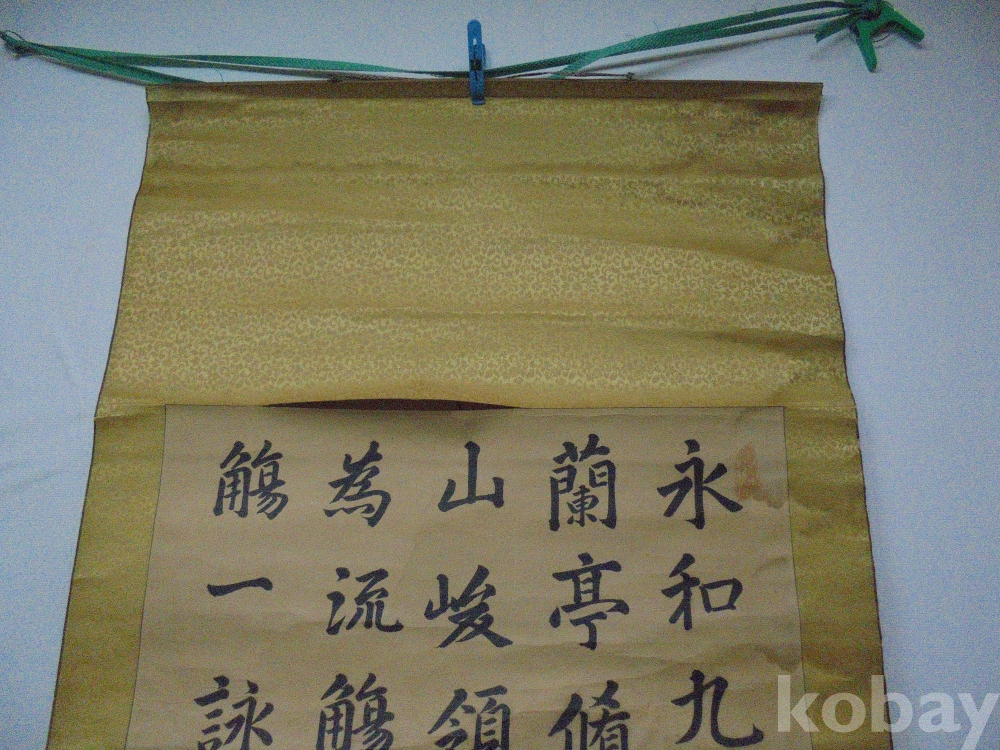 永和九
蘭亭脩
山峻領
為流觴
觴一詠
kobay